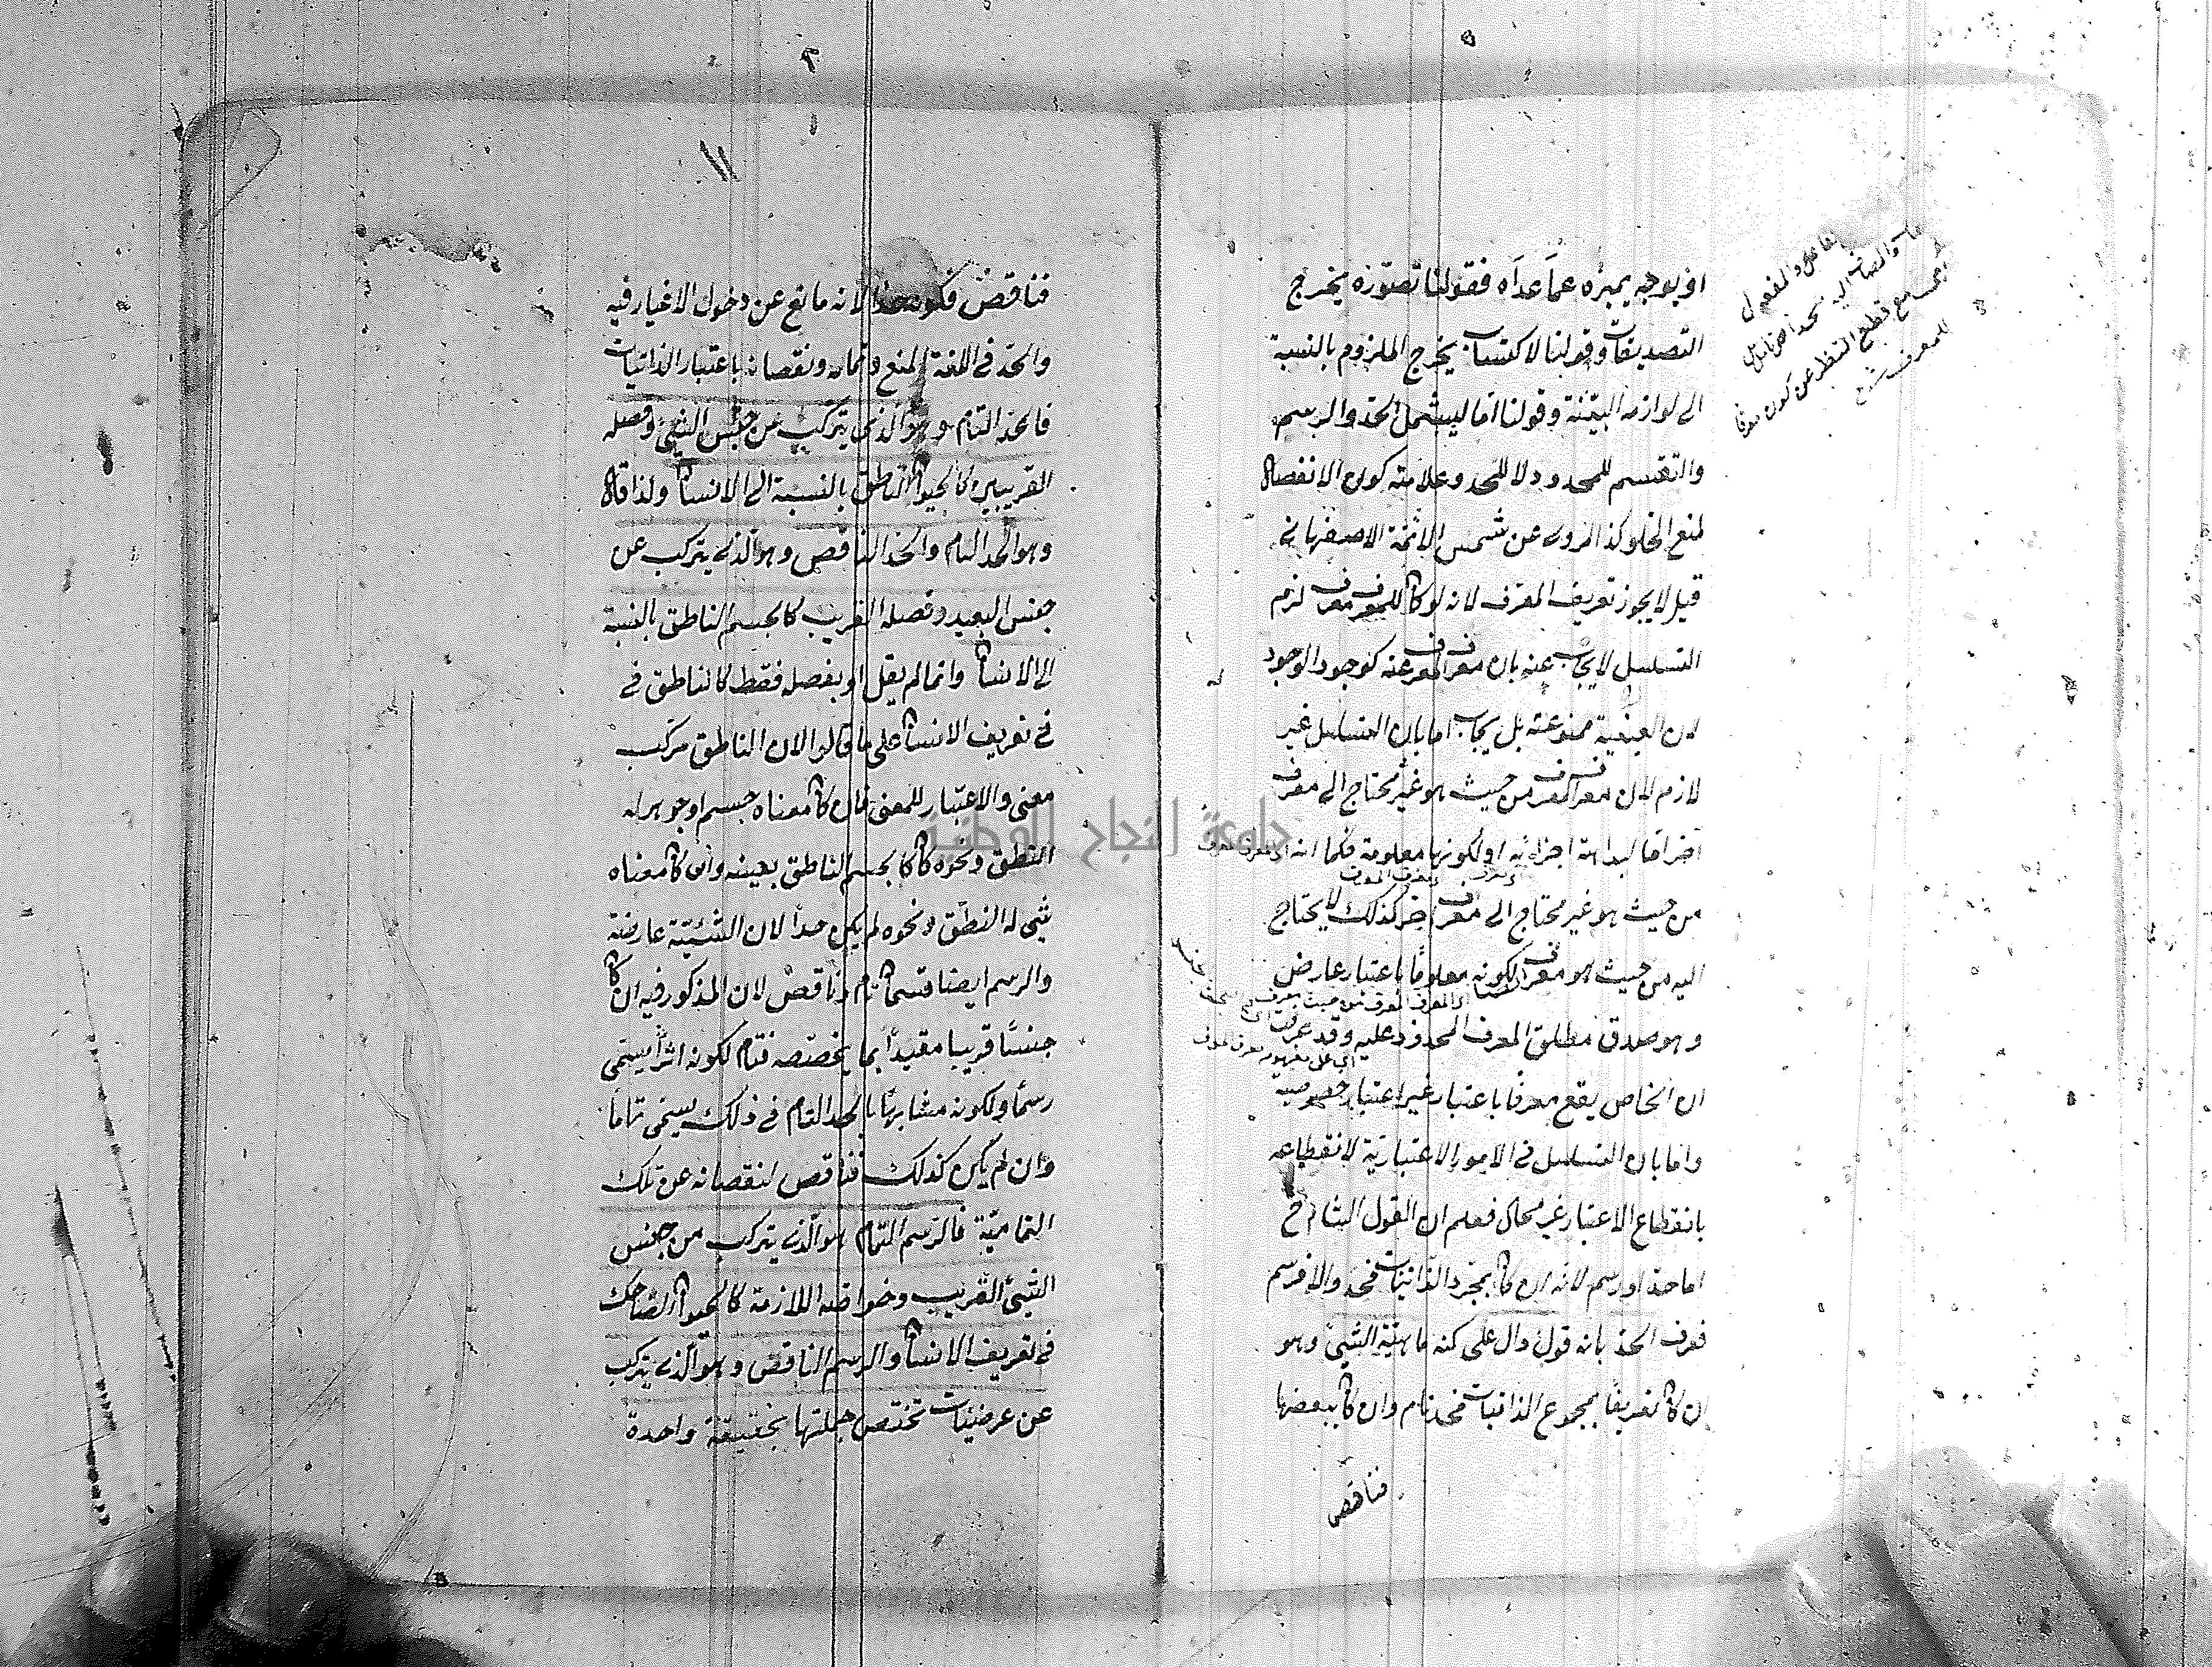 او بوجه يميزه عما عداه فقولنا تصوره يخرج
التصديقات وقولنا لاكتساب يخرج الملزوم بالنسبة
الى لوازمه البينة وقولنا اما ليشمل الحد والرسم
والتقسيم للمحدود لا للحد وعلامته كون الانفصال
لمنع الخلو كذا المروى عن شمس الائمة الاصفهاني
قيل لا يجوز تعريف المعرف لانه لو كان للمعرف معرف لزم
التسلسل لا يجاب عنه بان معرف المعرف عنه كوجود الوجود
لان العينية ممنوعة بل يجاب اما بان التسلسل غير
لازم لان معرف المعرف من حيث هو غير محتاج الى معرف
آخر اما لبداهة اجزائه او لكونها معلومة فكما انه
من حيث هو غير محتاج الى معرف آخر كذلك لا يحتاج
اليه من حيث هو معرف لكونه معلوما باعتبار عارض
وهو صدق مطلق المعرف المحدود عليه وقد عرفت
ان الخاص يقع معرفا باعتبار غير اعتبار خصوصيته
واما بان التسلسل في الامور الاعتبارية لانقطاعه
بانقطاع الاعتبار غير محال فعلم ان القول الشارح
اما حد او رسم لانه ان كان بمجرد الذاتيات فحد والا فرسم
فعرف الحد بانه قول دال على كنه ماهية الشئ وهو
ان كان تعريفا بمجموع الذاتيات فحد تام وان كان ببعضها
فناقص
مع قطع النظر عن كون
للمعرف
١١
فناقص فكونه حدا لانه مانع عن دخول الاغيار فيه
والحد في اللغة المنع وتمامه ونقصانه باعتبار الذاتيات
فالحد التام وهو الذي يتركب عن جنس الشئ وفصله
القريبين كالحيوان الناطق بالنسبة الى الانسان ولذا قال
وهو الحد التام والحد الناقص وهو الذي يتركب عن
جنس البعيد وفصله القريب كالجسم الناطق بالنسبة
الى الانسان وانما لم يقل او بفصله فقط كالناطق في
في تعريف الانسان على ما قالوا لان الناطق مركب
معنى والاعتبار للمعنى فان كان معناه جسم او جوهر له
النطق ونحوه كان كالجسم الناطق بعينه وان كان معناه
شئ له النطق ونحوه لم يكن حدا لان الشيئية عارضة
والرسم ايضا قسمان تام وناقص لان المذكور فيه ان كان
جنسا قريبا مقيدا بما يخصصه فتام لكونه اثرا يسمى
رسما ولكونه مشابها بالحد التام في ذلك يسمى تاما
وان لم يكن كذلك فناقص لنقصانه عن تلك
التمامية فالرسم التام هو الذي يتركب من جنس
الشئ القريب وخواصه اللازمة كالحيوان الضاحك
في تعريف الانسان والرسم الناقص وهو الذي يتركب
عن عرضيات تختص جملتها بحقيقة واحدة
جامعة النجاح الوطنية